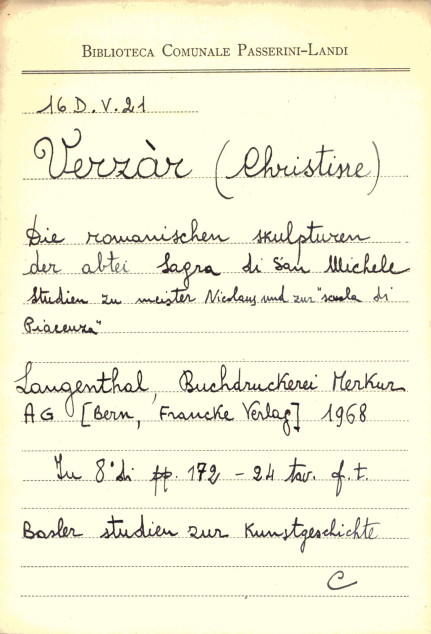 BIBLIOTECA COMUNALE PASSERINI-LANDI
16 D. V. 21
Verzàr (Christine)
Die romanischen skulpturen
der abtei Sagra di San Michele
Studien zu meister Nicolaus und zur "scuola di
Piacenza"
Langenthal, Buchdruckerei Merkur
AG [Bern, Francke Verlag] 1968
In 8° di pp. 172 - 24 tav. f. t.
Basler studien zur Kunstgeschichte
C